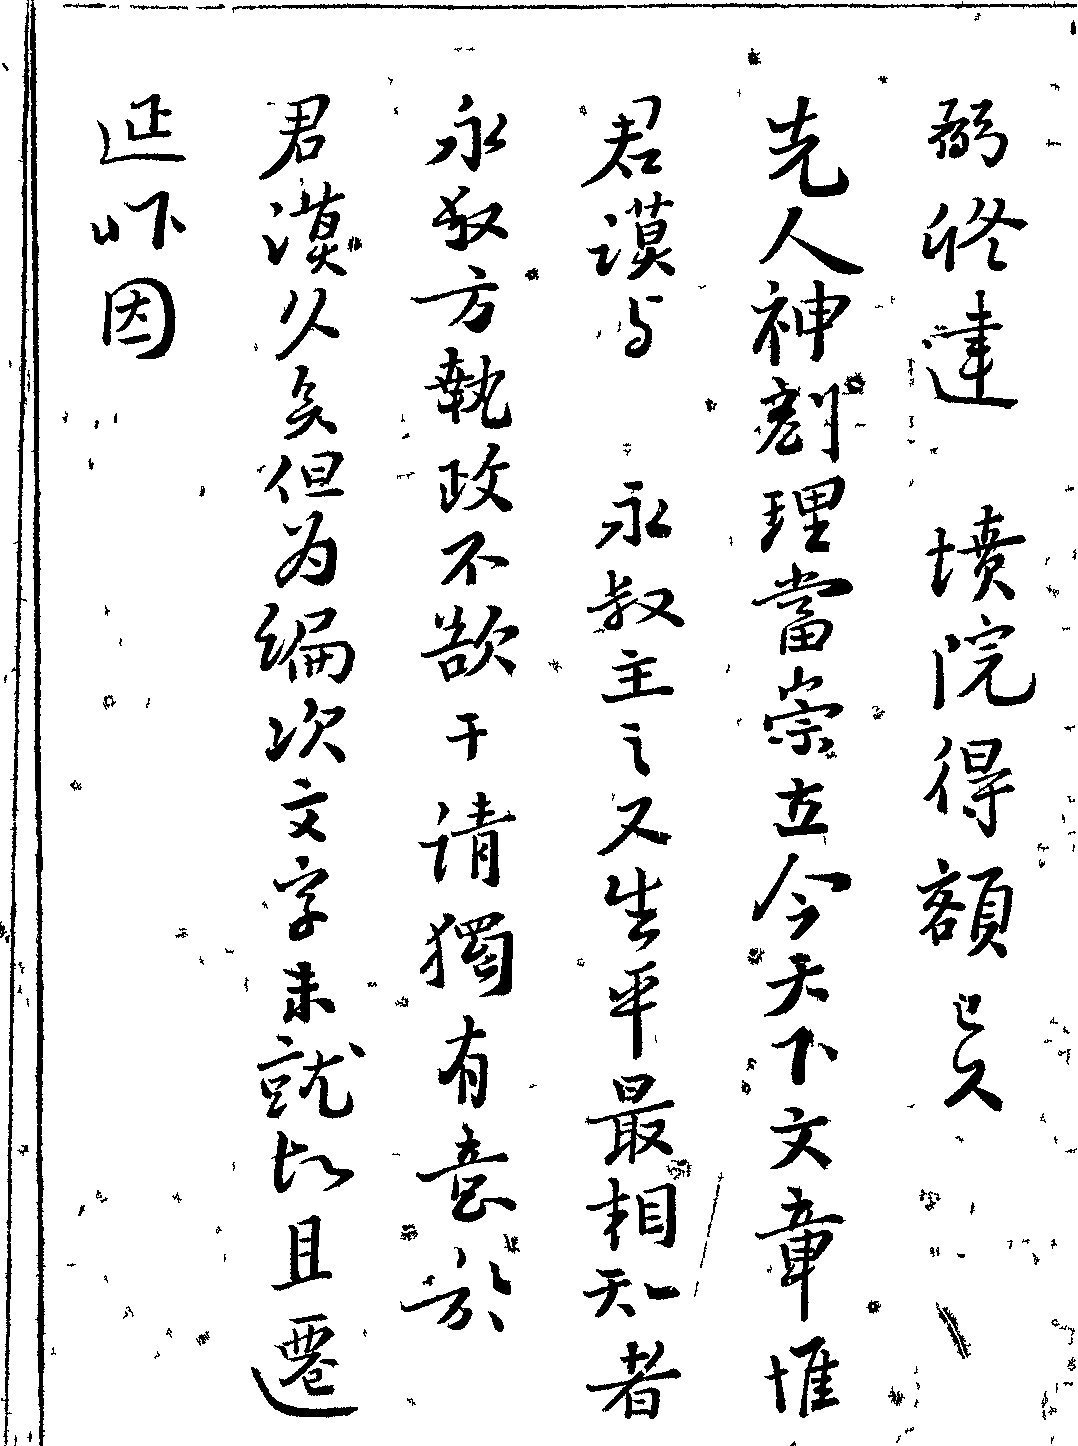 弼修建　墳院得額已久
先人神刻理當崇立今天下文章惟
君謨与　永叔主之又生平最相知者
永叔方執政不欲干请獨有意於
君謨久矣但为编次文字未就故且遷
延此因